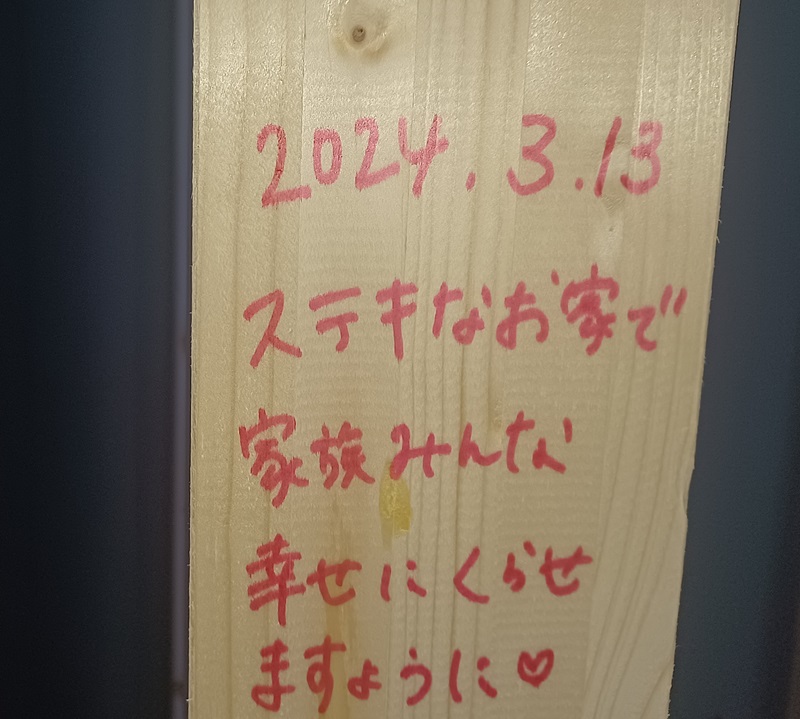 2024.3.13
ステキなお家で
家族みんな
幸せにくらせ
ますように♡